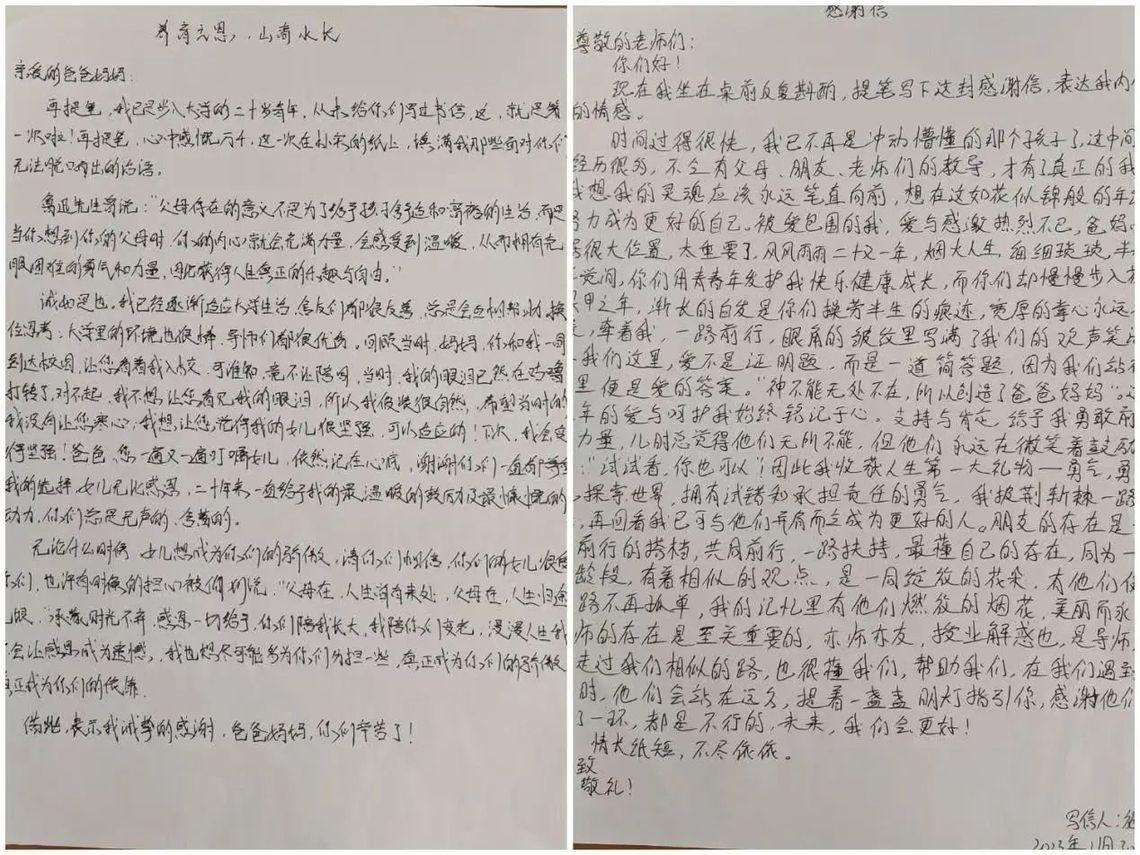 养育之恩，山高水长
亲爱的爸爸妈妈：
再提笔，我已是步入大学的二十岁青年，从未给你们写过书信，这，就是第
一次啦！再提笔，心中感慨万千，这一次在朴实的纸上，填满我那些面对你们
无法脱口而出的话语。
鲁迅先生曾说：“父母存在的意义不是为了给予孩子舒适和富裕的生活，而是
当你想到你的父母时，你的内心就会充满力量，会感受到温暖，从而拥有克
服困难的勇气和力量，因此获得人生真正的乐趣与自由。”
诚如是也，我已经逐渐适应大学生活，舍友们都很友善，总是会互相帮助，换
位思考；大学里的环境也很棒，导师们都很优秀。回照当时，妈妈，你和我一同
到达校园，让您看着我入校，可谁知，竟不让陪同，当时，我的眼泪已然在眼眶
打转了，对不起，我不想让您看见我的眼泪，所以我假装很自然，希望当时的
我没有让您寒心，我想让您觉得我的女儿很坚强，可以适应的！下次，我会变
得坚强！爸爸，您一遍又一遍叮嘱女儿，依然记在心底，谢谢你们一直都尊重
我的选择，女儿无比感恩，二十年来一直给予我的最温暖的 最慷慨的
动力，你们总是无声的，含蓄的。
无论什么时候，女儿想成为你们的骄傲，请你们相信，你们的女儿很爱
你们，也许有时候的担心 “父母在，人生尚有来处，父母在，人生归途
 承蒙时光不弃，感恩一切给予，你们陪我长大，我陪你们变老，漫漫人生我
会让感恩成为遗憾，我也想尽可能多为你们分担一些，真正成为你们的骄傲
真正成为你们的依靠。
借此，表示我诚挚的感谢，爸爸妈妈，你们辛苦了！
感谢信
尊敬的老师们：
你们好！
现在我坐在桌前反复斟酌，提笔写下这封感谢信，表达我内
的情感。
时间过得很快，我已不再是冲动懵懂的那个孩子了，这中间
经历很多，不会有父母、朋友、老师们的教导，才有了真正的我
我想我的灵魂应该永远笔直向前，想在这如花似锦般的年
努力成为更好的自己。被爱包围的我，爱与感激热烈不已，爸妈
很大位置，太重要了，风风雨雨二十又一年，烟火人生，每细琐琐，半
觉间，你们用青春年发护我快乐健康成长，而你们却慢慢步入
甲之年，渐长的白发是你们操劳半生的痕迹，宽厚的掌心永远
牵着我，一路前行，眼角的皱纹里写满了我们的欢声笑
我们这里，爱不是证明题，而是一道简答题，因为我们站
里便是爱的答案。“神不能无处不在，所以创造了爸爸妈妈”。
年的爱与呵护我始终铭记于心。支持与肯定给予我勇敢前
力量，儿时总觉得他们无所不能，但他们永远在微笑着鼓
：“试试看，你也可以”！因此我收获人生第一大礼物——勇气，勇
探索世界，拥有试错和承担责任的勇气。我披荆斩棘一路
，再回看我已可与他们并肩而立成为更好的人。朋友的存在是
前行的搭档，共同前行，一路扶持，最懂自己的存在，同为一
龄段，有着相似的观点，是一同绽放的花朵，有他们
路不再孤单，我的记忆里有他们燃放的烟花，美丽而永
师的存在是至关重要的，亦师亦友，授业解惑也，是导师，
走过我们相似的路，也很懂我们，帮助我们，在我们遇到
时，他们会站在远方，提着一盏盏明灯指引你，感谢他们
了一环，都是不行的，未来，我们会更好！
情长纸短，不尽依依。
致
敬礼！
写信人：
2023年11月20